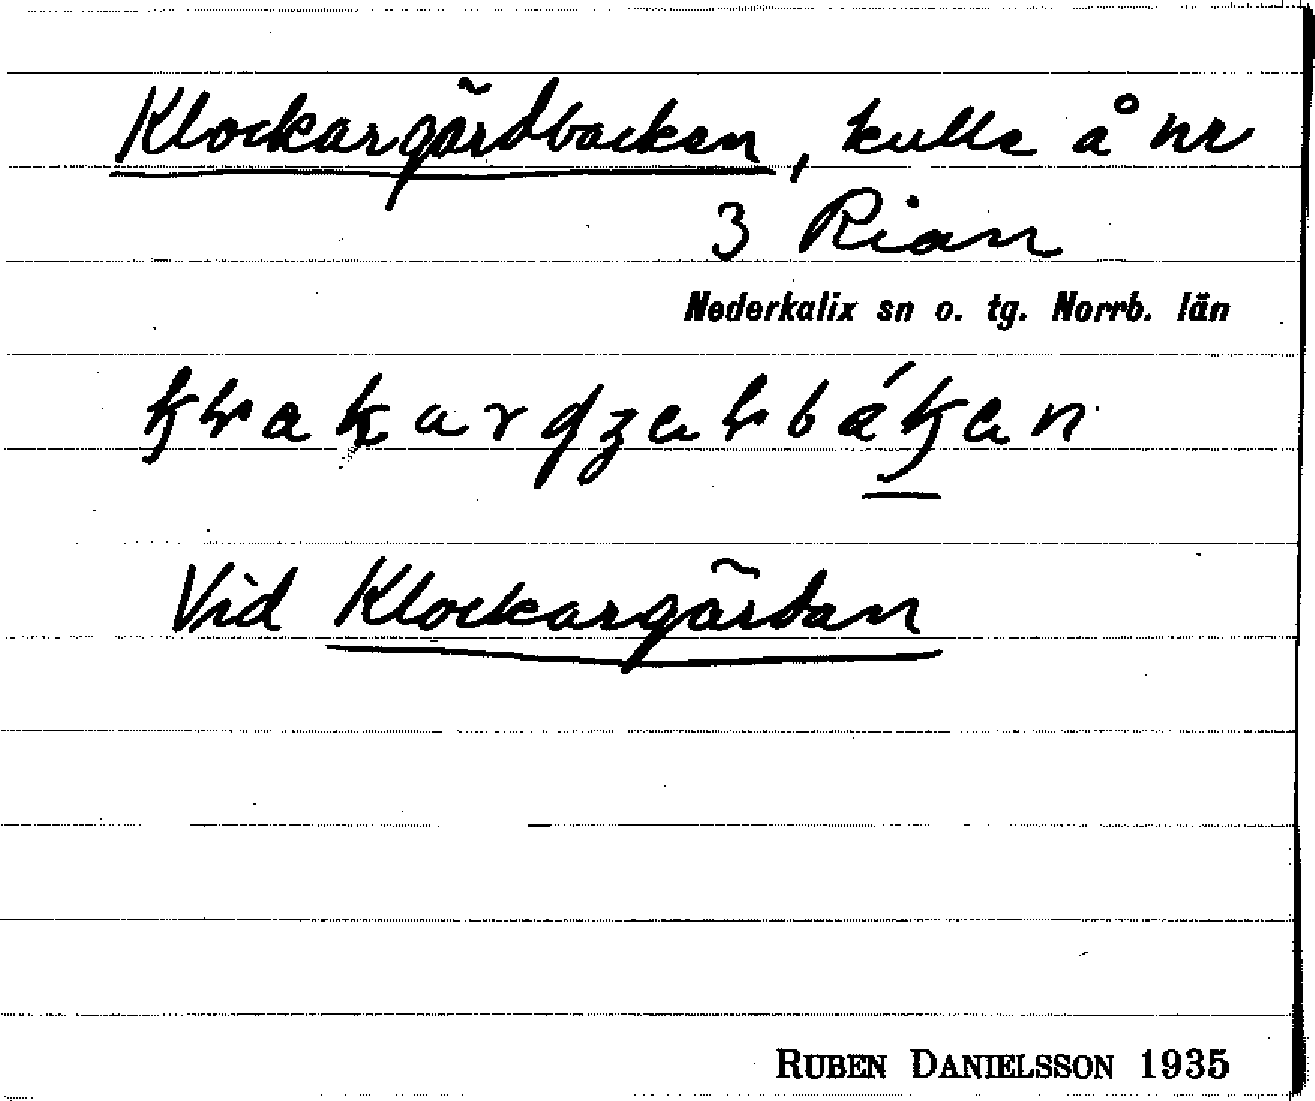 Klockargärdbacken, kulle å nr
3 Rian
Nederkalix sn o. tg. Norrb. län
Vid Klockargärdan
RUBEN DANIELSSON 1935